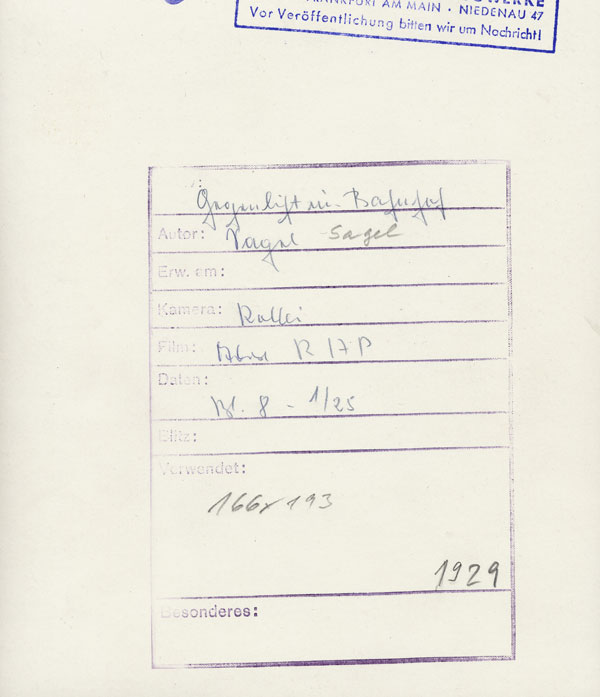 FRANKFURT AM MAIN · NIEDENAU 47
Vor Veröffentlichung bitten wir um Nachricht!
Gegenlicht im Bahnhof
Autor: Sagel
Erw. am:
Kamera: Rollei
Film:
Daten:
Bl. 8 - 1/25
Blitz:
Verwendet:
166x193
1929
Besonderes: